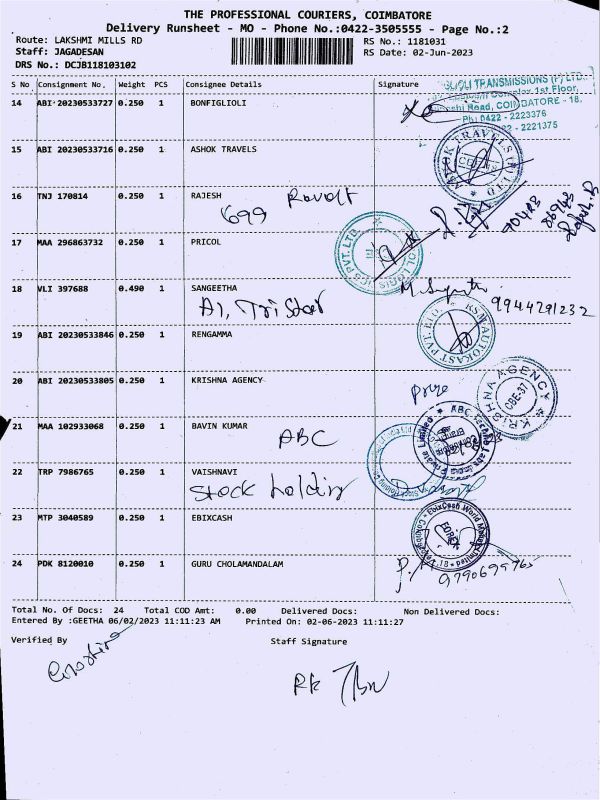 THE PROFESSIONAL COURIERS, COIMBATORE
Delivery Runsheet - MO - Phone No.:0422-3505555 - Page No.:2
Route: LAKSHMI MILLS RD RS No.: 1181031
Staff: JAGADESAN RS Date: 02-Jun-2023
DRS No.: DCJB118103102
S No Consignment No. Weight PCS Consignee Details Signature
14 ABI 20230533727 0.250 1 BONFIGLIOLI
TRANSMISSIONS (P) LTD.
1st Floor,
Road, COIMBATORE - 18.
Ph: 0422 - 2223376
- 2221375
15 ABI 20230533716 1 0.250 1 ASHOK TRAVELS
ASHOK TRAVELS (P) LTD
16 TNJ 170814 0.250 1 RAJESH
699
17 MAA 296863732 0.250 1 PRICOL
18 VLI 397688 0.490 1 SANGEETHA
A1, Tristar
9944291232
RSM AUTOKAST PVT. LTD.
19 ABI 20230533846 0.250 1 RENGAMMA
20 ABI 20230533805 0.250 1 KRISHNA AGENCY
KRISHNA AGENCY
CBE-37
21 MAA 102933068 0.250 1 BAVIN KUMAR
ABC
22 TRP 7986765 0.250 1 VAISHNAVI
Stock holding
23 MTP 3040589 0.250 1 EBIXCASH
EbixCash World Money Limited
FOREX
24 PDK 8120010 0.250 1 GURU CHOLAMANDALAM
Total No. Of Docs: 24 Total COD Amt: 0.00 Delivered Docs: Non Delivered Docs:
Entered By :GEETHA 06/02/2023 11:11:23 AM Printed On: 02-06-2023 11:11:27
Verified By Staff Signature